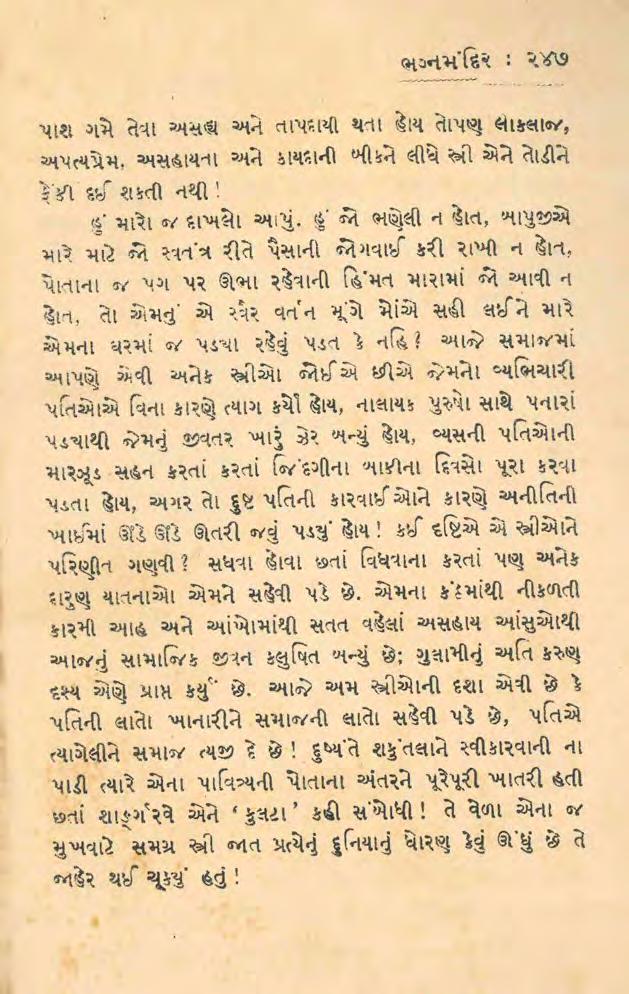 ભગ્નમંદિર : ૨૪૭
પાશ ગમે તેવા અસહ્ય અને તાપદાયી થતા હોય તોપણ લોકલાજ,
અપત્યપ્રેમ, અસહાયતા અને કાયદાની બીકને લીધે સ્ત્રી એને તોડીને
ફેંકી દઈ શકતી નથી !
હું મારો જ દાખલો આપું. હું જો ભણેલી ન હોત, બાપુજીએ
મારે માટે જો સ્વતંત્ર રીતે પૈસાની જોગવાઈ કરી રાખી ન હોત,
પોતાના જ પગ પર ઊભા રહેવાની હિંમત મારામાં જો આવી ન
હોત, તો એમનું એ સ્વૈર વર્તન મૂંગે મોંએ સહી લઈને મારે
એમના ઘરમાં જ પડ્યા રહેવું પડત કે નહિ ? આજે સમાજમાં
આપણે એવી અનેક સ્ત્રીઓ જોઈએ છીએ જેમનો વ્યભિચારી
પતિઓએ વિના કારણે ત્યાગ કર્યો હોય, નાલાયક પુરુષો સાથે પનારાં
પડ્યાથી જેમનું જીવતર ખારું ઝેર બન્યું હોય, વ્યસની પતિઓની
મારઝૂડ સહન કરતાં કરતાં જિંદગીના બાકીના દિવસો પૂરા કરવા
પડતા હોય, અગર તો દુષ્ટ પતિની કારવાઈઓને કારણે અનીતિની
ખાઈમાં ઊંડે ઊંડે ઊતરી જવું પડયું હોય ! કઈ દૃષ્ટિએ એ સ્ત્રીઓને
પરિણીત ગણવી ? સધવા હોવા છતાં વિધવાના કરતાં પણ અનેક
દારુણ યાતનાઓ એમને સહેવી પડે છે. એમના કંઠમાંથી નીકળતી
કારમી આહ અને આંખોમાંથી સતત વહેલાં અસહાય આંસુઓથી
આજનું સામાજિક જીવન કલુષિત બન્યું છે; ગુલામીનું અતિ કરુણ
દૃશ્ય એણે પ્રાપ્ત કર્યું છે. આજે અમ સ્ત્રીઓની દશા એવી છે કે
પતિની લાતો ખાનારીને સમાજની લાતો સહેવી પડે છે, પતિએ
ત્યાગેલીને સમાજ ત્યજી દે છે ! દુષ્યંતે શકુંતલાને સ્વીકારવાની ના
પાડી ત્યારે એના પાવિત્ર્યની પોતાના અંતરને પૂરેપૂરી ખાતરી હતી
છતાં શાર્ઙ્ગરવે એને ‘ કુલટા ’ કહી સંબોધી ! તે વેળા એના જ
મુખવાટે સમગ્ર સ્ત્રી જાત પ્રત્યેનું દુનિયાનું ધોરણ કેવું ઊંધું છે તે
જાહેર થઈ ચૂક્યું હતું !